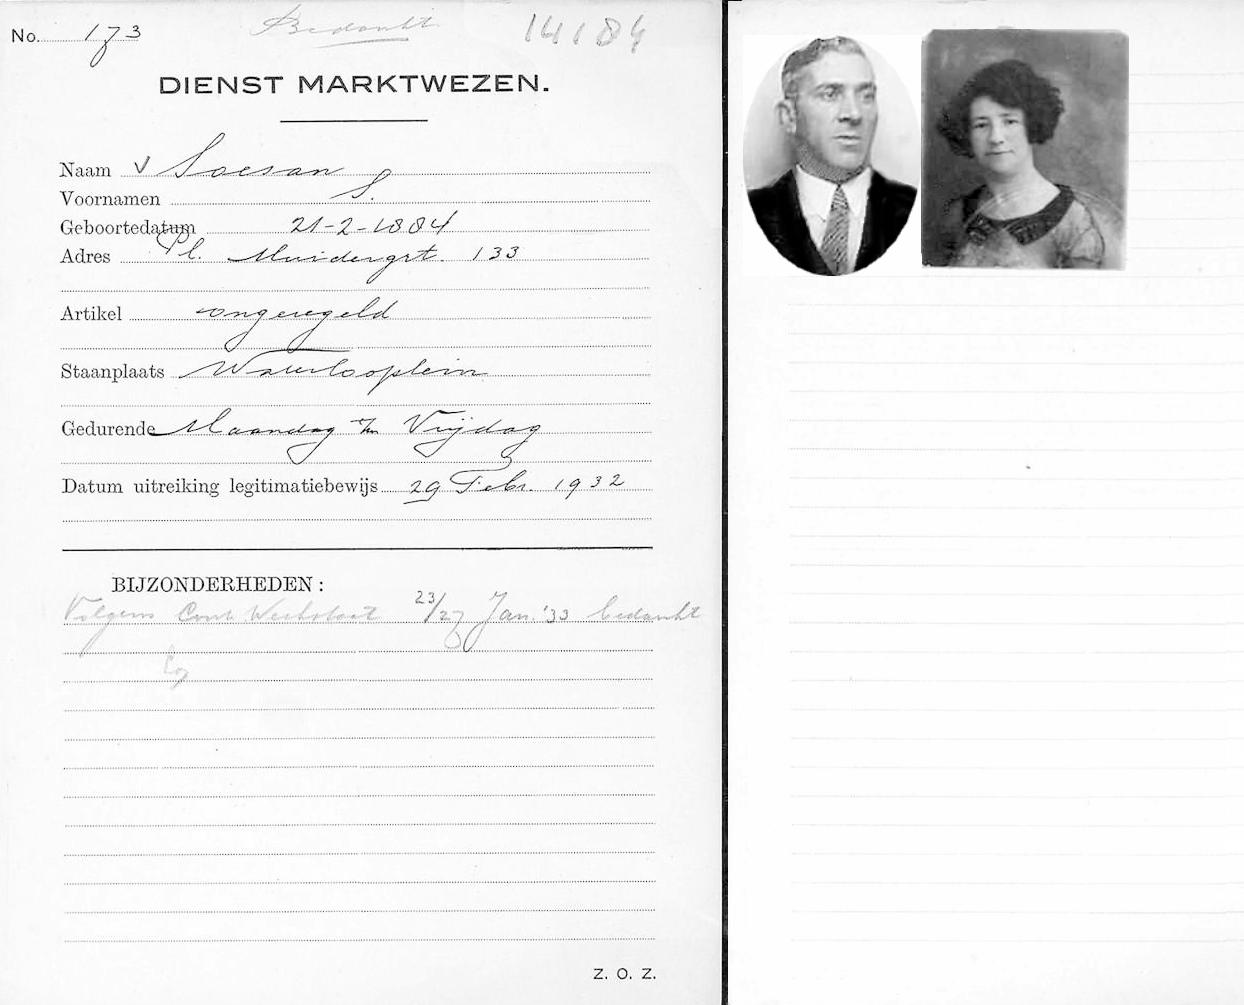 No. 173 Bedankt 14184
DIENST MARKTWEZEN.
Naam v Soesan
Voornamen S.
Geboortedatum 21-2-1884
Adres Pl. Muidergrt. 133
Artikel ongeregeld
Staanplaats Waterlooplein
Gedurende Maandag t/m Vrijdag
Datum uitreiking legitimatiebewijs 29 Febr. 1932
BIJZONDERHEDEN:
Volgens Contr. Weekstaat 23/27 Jan. '33 bedankt
Z. O. Z.